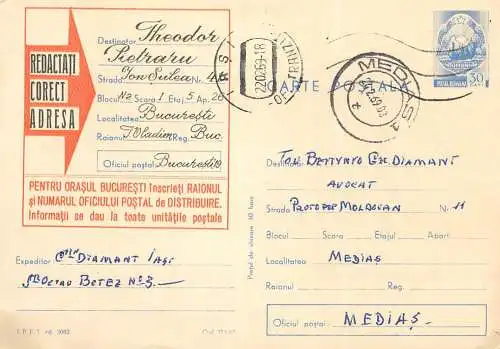 REDACTAȚI
CORECT
ADRESA
Destinatar Theodor
Petraru
Strada Ion Șulea Nr. 4
Blocul N2 Scara 1 Etaj 5 Ap. 26
Localitatea București
Raionul T Vladim. Reg. Buc.
Oficiul poștal București
PENTRU ORAȘUL BUCUREȘTI înscrieți RAIONUL
și NUMARUL OFICIULUI POȘTAL de DISTRIBUIRE.
Informații se dau la toate unitățile poștale
Expeditor DIAMANT IAȘI
BOTEZ No 5
TRANZIT
MEDIAȘ
POSTA ROMANA
30
CARTE POȘTALĂ
Destinatar
DIAMANT
AVOCAT
Strada PROTOPOP MOLDOVAN Nr. 11
Blocul Scara Etajul Apart.
Localitatea MEDIAȘ
Raionul Reg.
Oficiul poștal: MEDIAȘ
Prețul de vînzare 40 bani